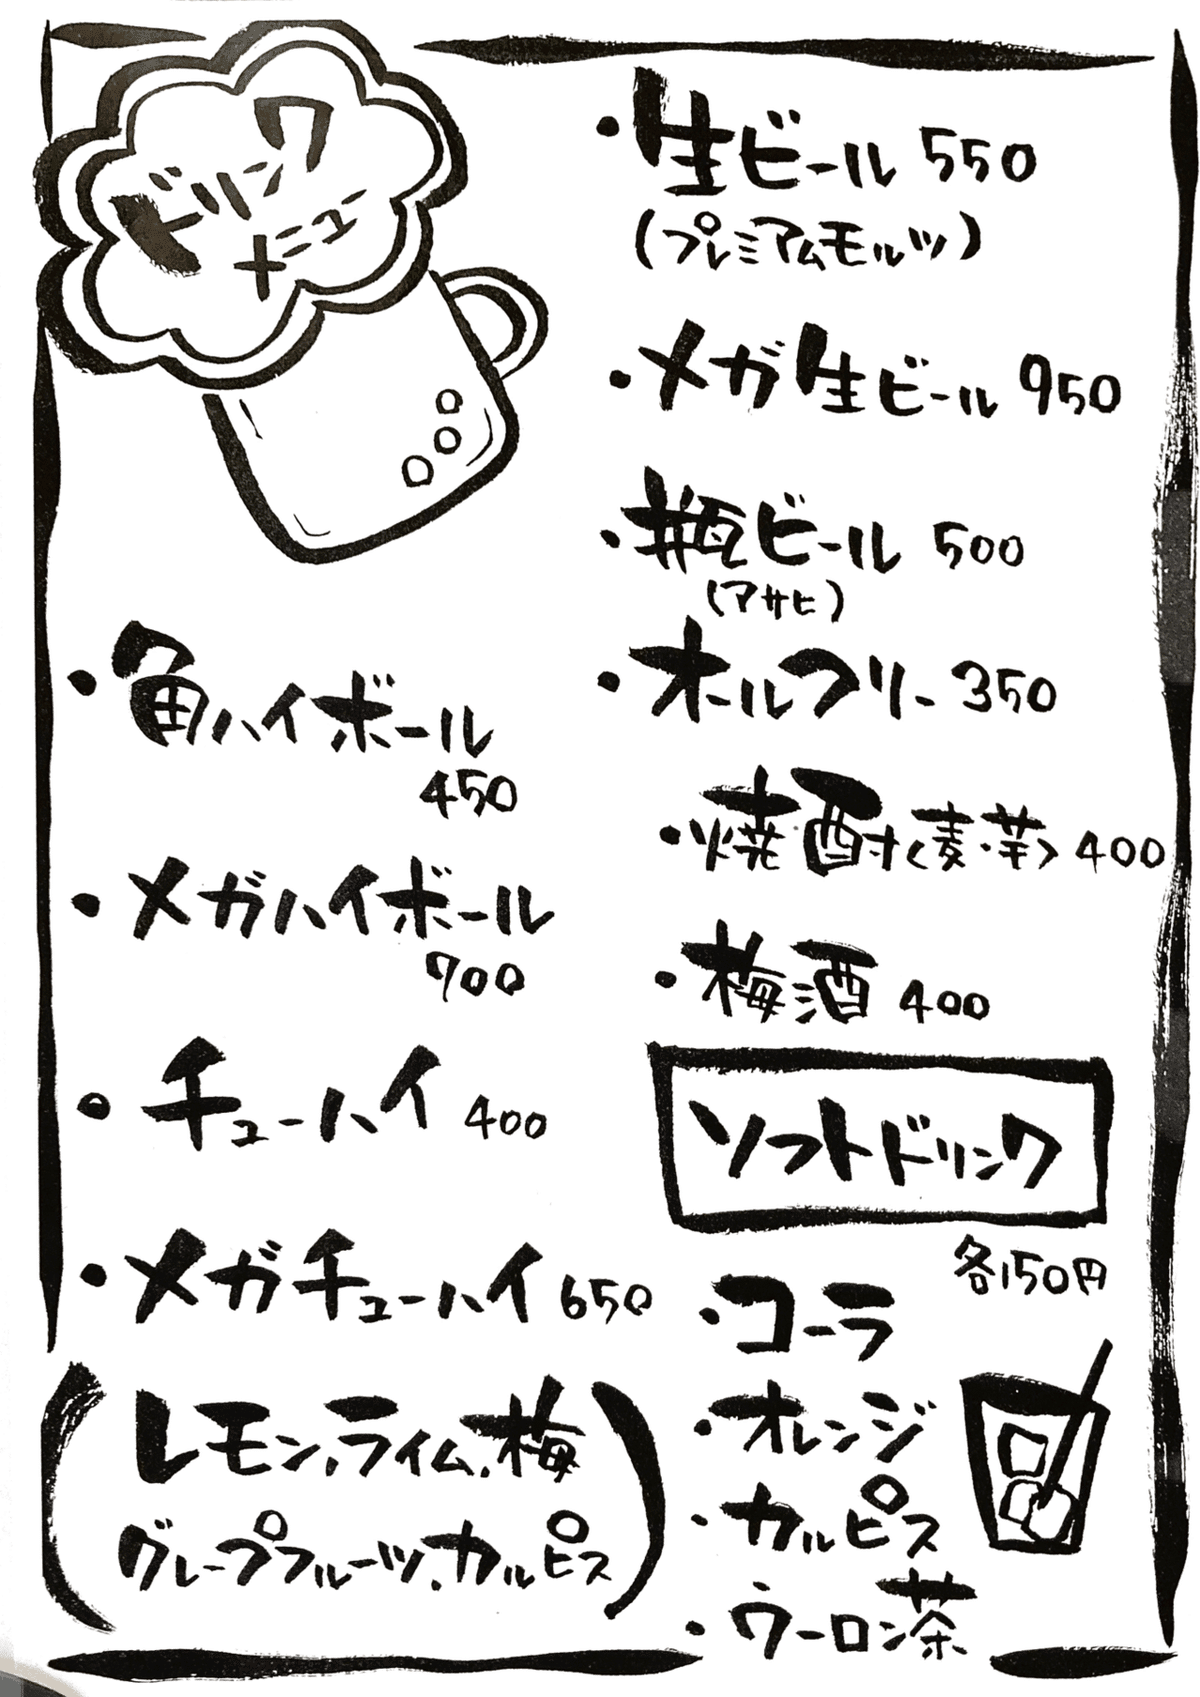 ドリンク
メニュー
・生ビール 550
(プレミアムモルツ)
・メガ生ビール 950
・瓶ビール 500
(アサヒ)
・オールフリー 350
・焼酎<麦・芋> 400
・梅酒 400
・角ハイボール
450
・メガハイボール
700
・チューハイ 400
・メガチューハイ 650
(レモン,ライム,梅
グレープフルーツ,カルピス)
ソフトドリンク
各150円
・コーラ
・オレンジ
・カルピス
・ウーロン茶